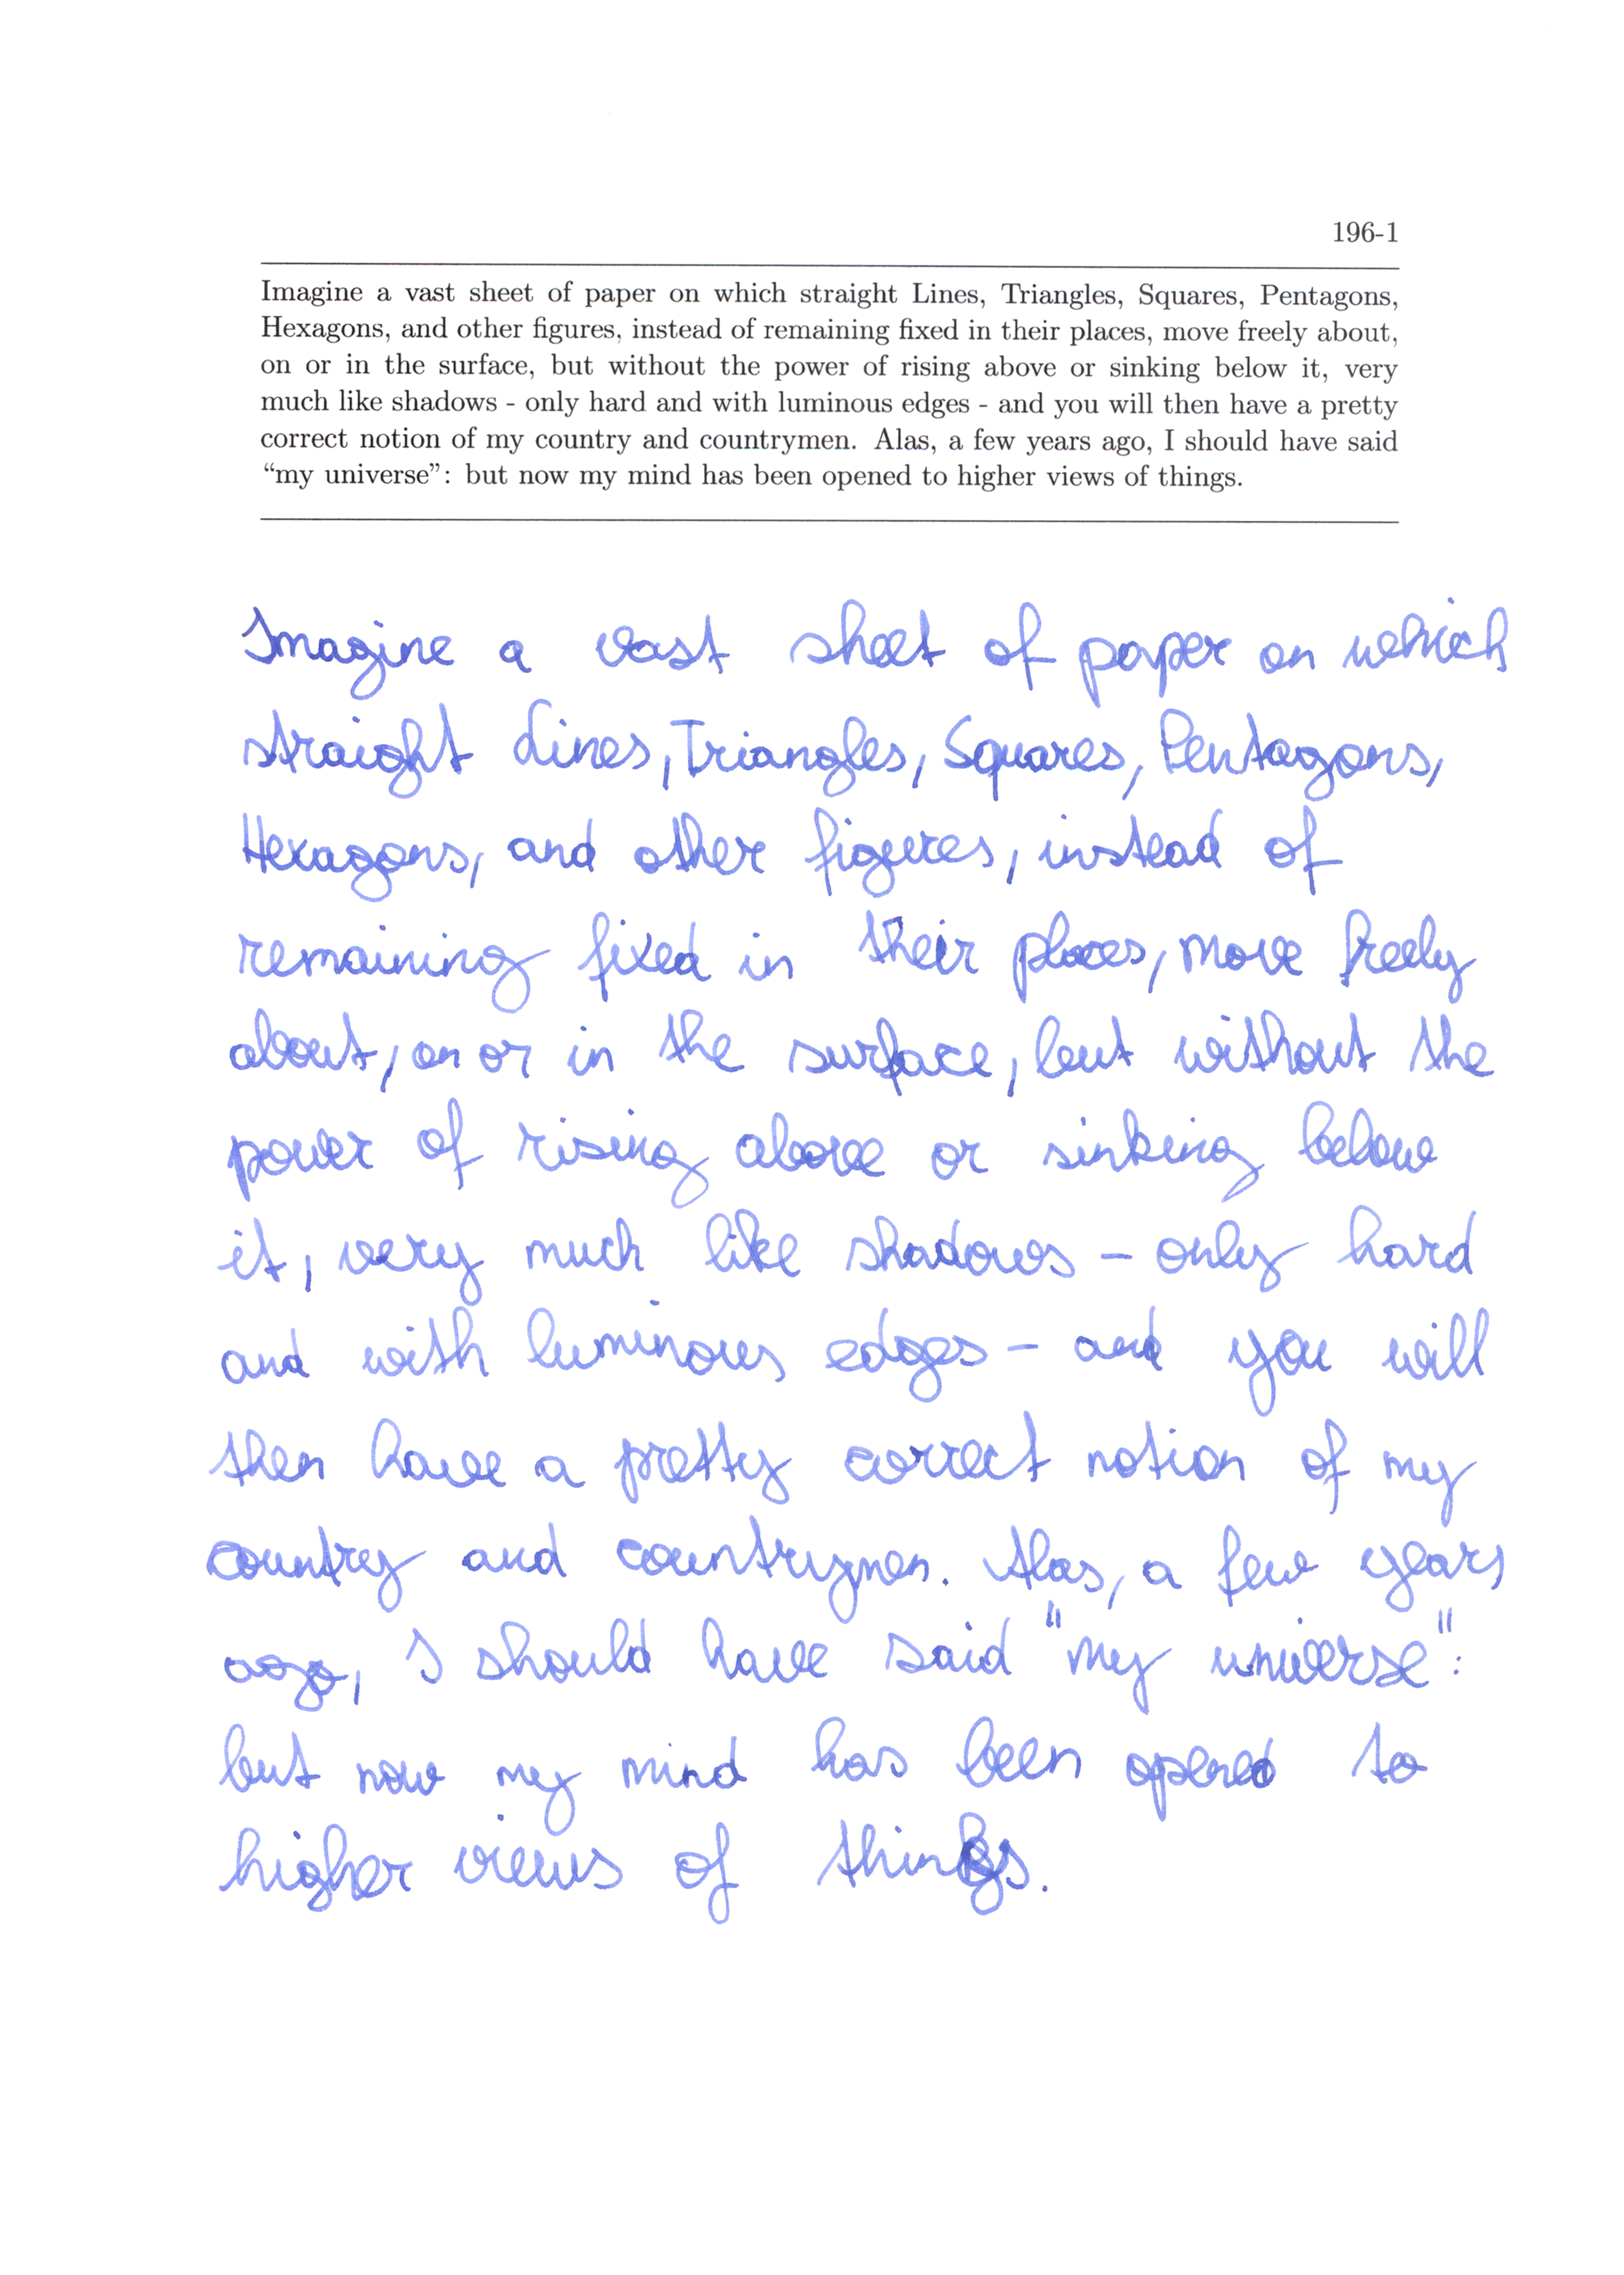 196-1
Imagine a vast sheet of paper on which straight Lines, Triangles, Squares, Pentagons,
Hexagons, and other figures, instead of remaining fixed in their places, move freely about,
on or in the surface, but without the power of rising above or sinking below it, very
much like shadows - only hard and with luminous edges - and you will then have a pretty
correct notion of my country and countrymen. Alas, a few years ago, I should have said
“my universe”: but now my mind has been opened to higher views of things.
Imagine a vast sheet of paper on which
straight Lines, Triangles, Squares, Pentagons,
Hexagons, and other figures, instead of
remaining fixed in their places, move freely
about, on or in the surface, but without the
power of rising above or sinking below
it, very much like shadows - only hard
and with luminous edges - and you will
then have a pretty correct notion of my
country and countrymen. Alas, a few years
ago, I should have said "my universe":
but now my mind has been opened to
higher views of things.